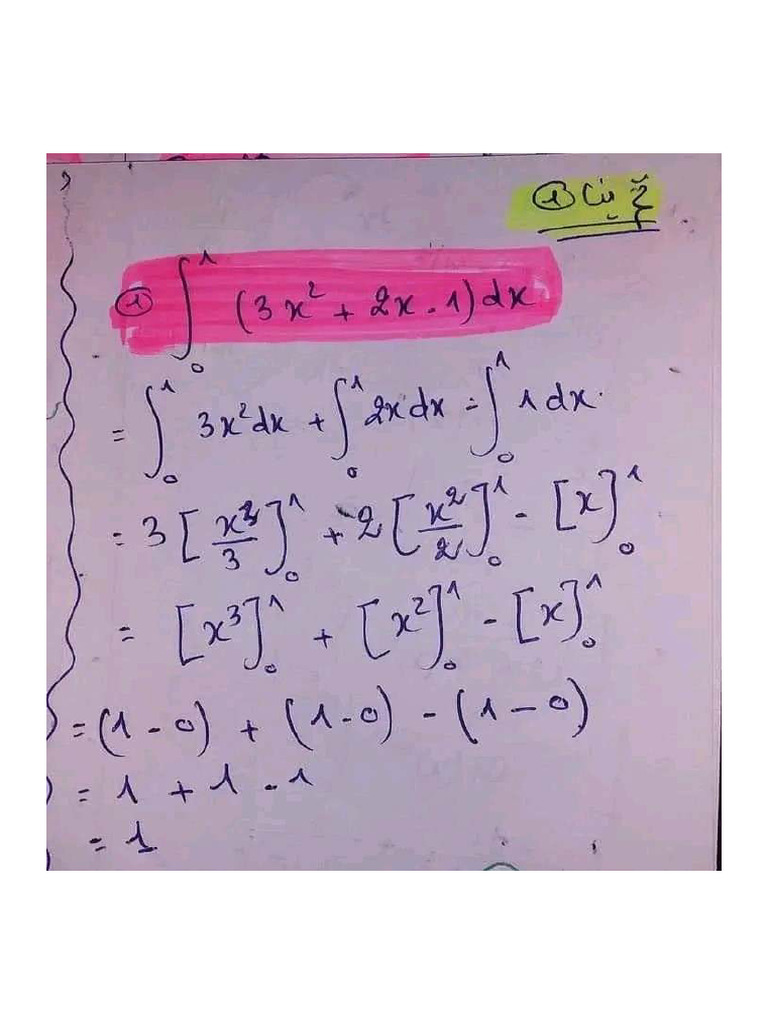 ① ∫₀¹ (3x² + 2x - 1) dx
= ∫₀¹ 3x² dx + ∫₀¹ 2x dx = ∫₀¹ 1 dx.
= 3 [x³/3]₀¹ + 2 [x²/2]₀¹ - [x]₀¹
= [x³]₀¹ + [x²]₀¹ - [x]₀¹
= (1 - 0) + (1 - 0) - (1 - 0)
= 1 + 1 - 1
= 1